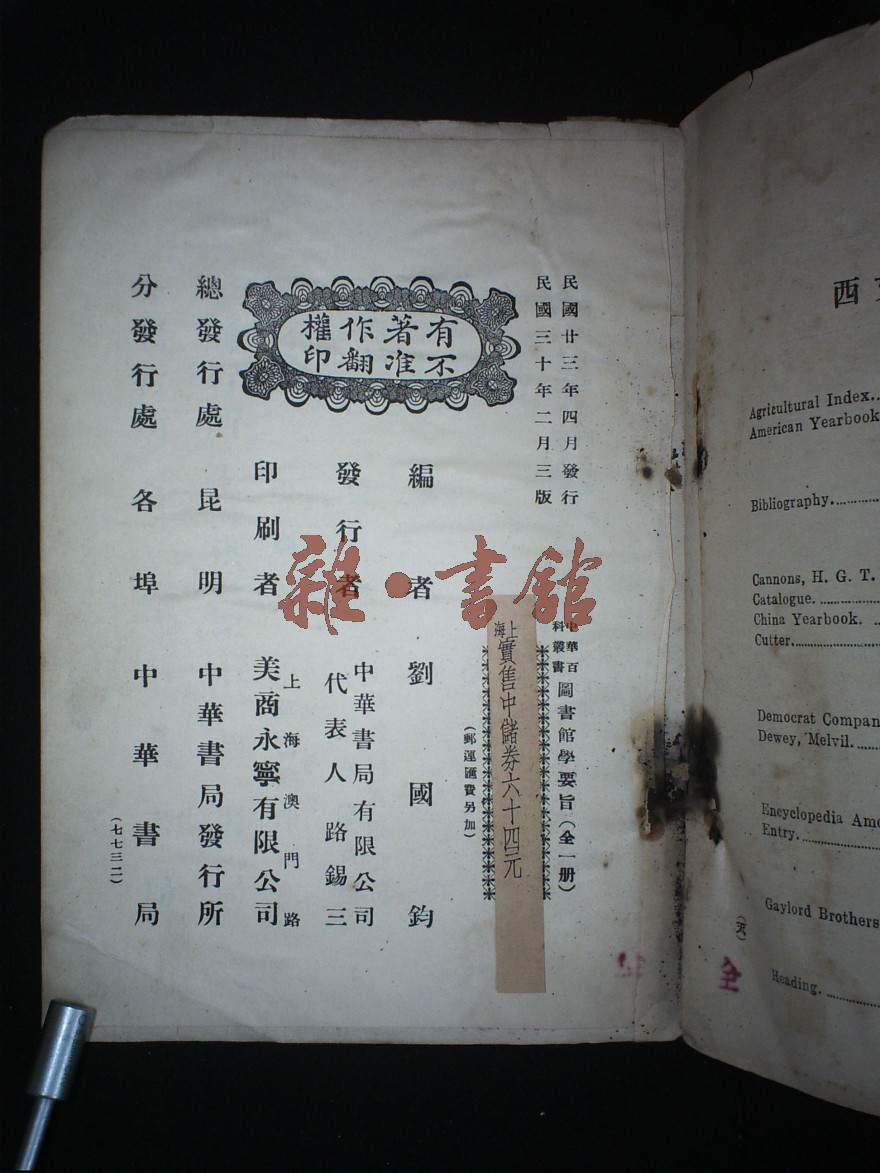 民國廿三年四月發行
民國三十年二月三版
有著作權
不准翻印
中華百科叢書 圖書館學要旨(全一册)
上海實售中儲券六十四元
(郵運匯費另加)
編者 劉國鈞
發行者 中華書局有限公司
代表人路錫三
印刷者 上海澳門路
美商永寧有限公司
總發行處 昆明 中華書局發行所
分發行處 各埠中華書局
(七七三二)
雜·書館
西
Agricultural Index..
American Yearbook
Bibliography
Cannons, H. G. T.
Catalogue.
China Yearbook.
Cutter
Democrat
Dewey, Melvil.
Encyclopedia
Entry.
Gaylord Brothers
Heading.
全